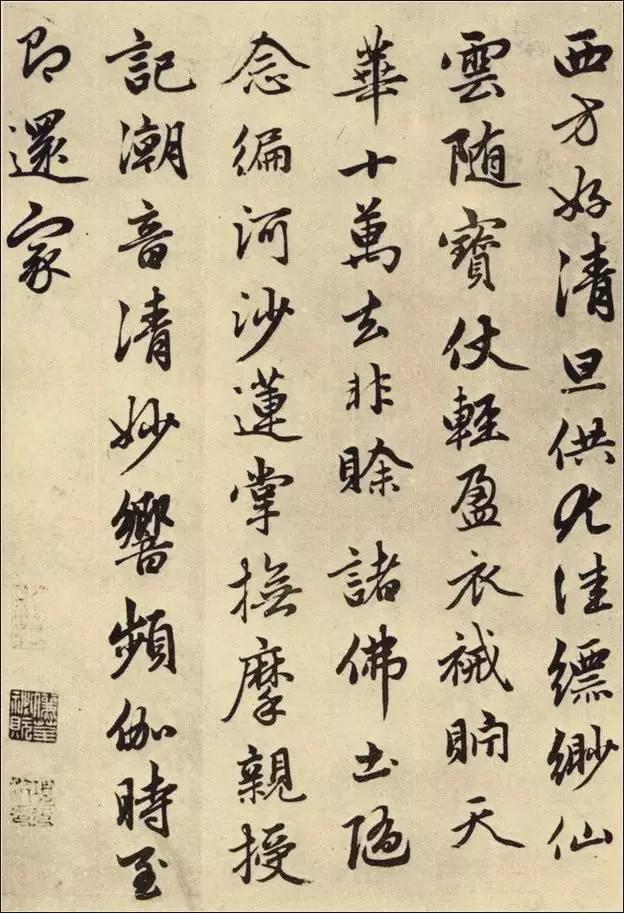 西方好清旦供尤佳縹緲仙
雲随寶仗輕盈衣裓貯天
華十萬去非賒諸佛土随
念編河沙蓮掌撫摩親授
記潮音清妙響頻伽時至
即還家